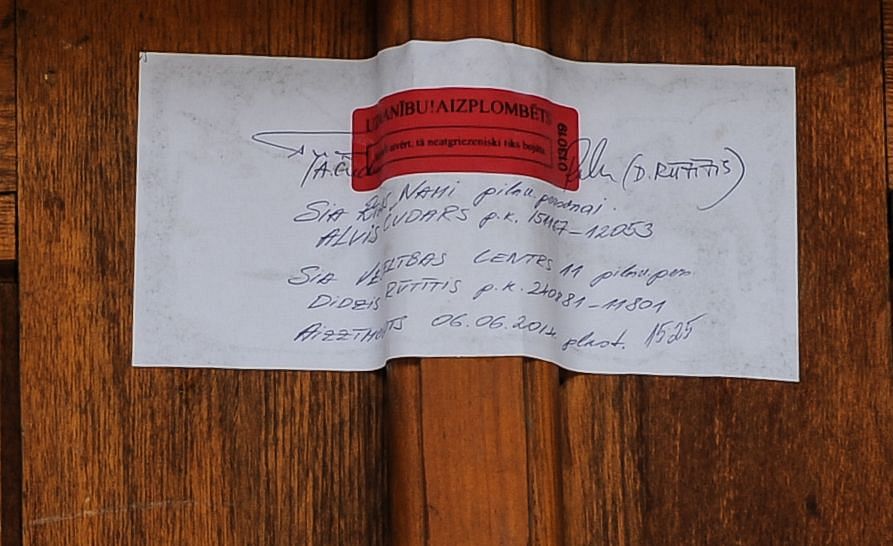 UZMANĪBU! AIZPLOMBĒTS
atvērt, tā neatgriezeniski tiks bojāta
013019
(D. RŪTĪTIS)
SIA NAMI pilnv. personai.
ALVIS ČUDARS p.k. 12053
SIA VESELĪBAS CENTRS 11 pilnv. pers.
DIDZIS RŪTĪTIS p.k. 240881-11801
AIZZĪMOTS 06.06.2012. plkst. 1525